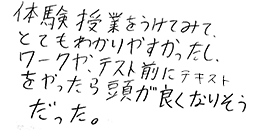 体験授業をうけてみて、
とてもわかりやすかったし、
ワークや、テスト前にテキスト
をやったら頭が良くなりそう
だった。